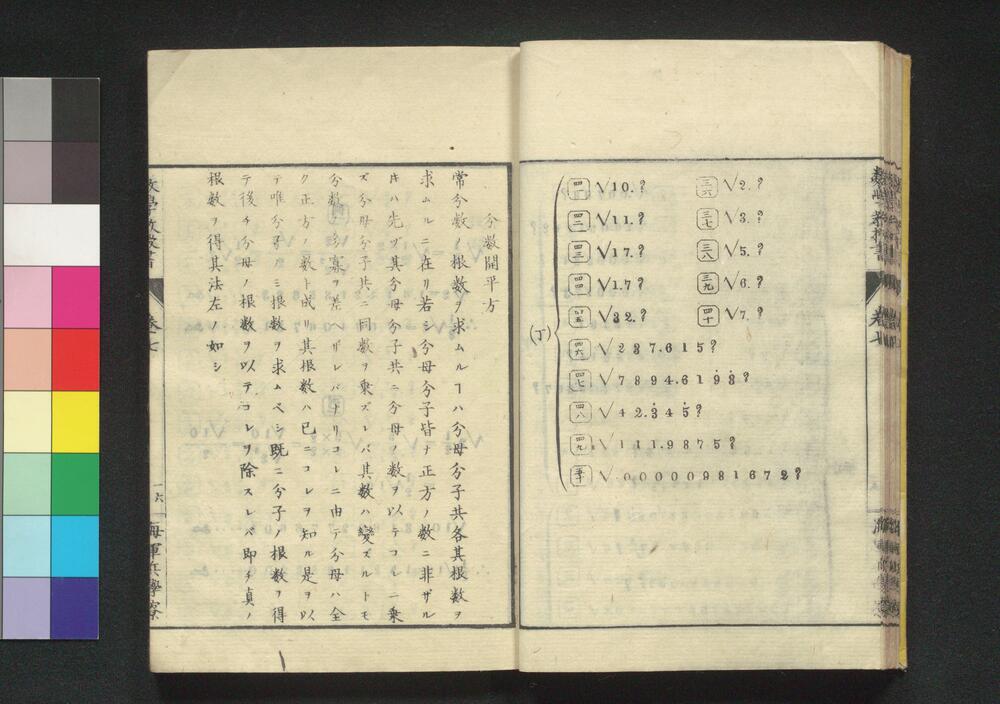 三六 √2.?
三七 √3.?
三八 √5.?
三九 √6.?
四十 √7.?
(丁)
四一 √10.?
四二 √11.?
四三 √17.?
四四 √1.7?
四五 √32.?
四六 √237.615?
四七 √7894.6193?
四八 √42.345?
四九 √111.9875?
√.00000981672?
分數開平方
常分數ノ根數ヲ求ムルヿハ分母分子共各其根數ヲ
求ムルニ在リ若シ分母分子皆ナ正方ノ數ニ非ザル
片ハ先ヅ其分母分子共ニ分母ノ數ヲ以テコレニ乘
ズ分母分子共ニ同數ヲ乘ズレバ其數ハ變ズルトモ
分數ノ多寡ヲ差ヘザレバナリコレニ由テ分母ハ全
ク正方ノ數ト成リ其根數ハ已ニコレヲ知ル是ヲ以
テ唯分子ノミ根數ヲ求ムベシ既ニ分子ノ根數ヲ得
テ後チ分母ノ根數ヲ以テコレヲ除スレバ即チ真ノ
根數ヲ得其法左ノ如シ
數學教授書
卷七
一六
海軍兵學寮